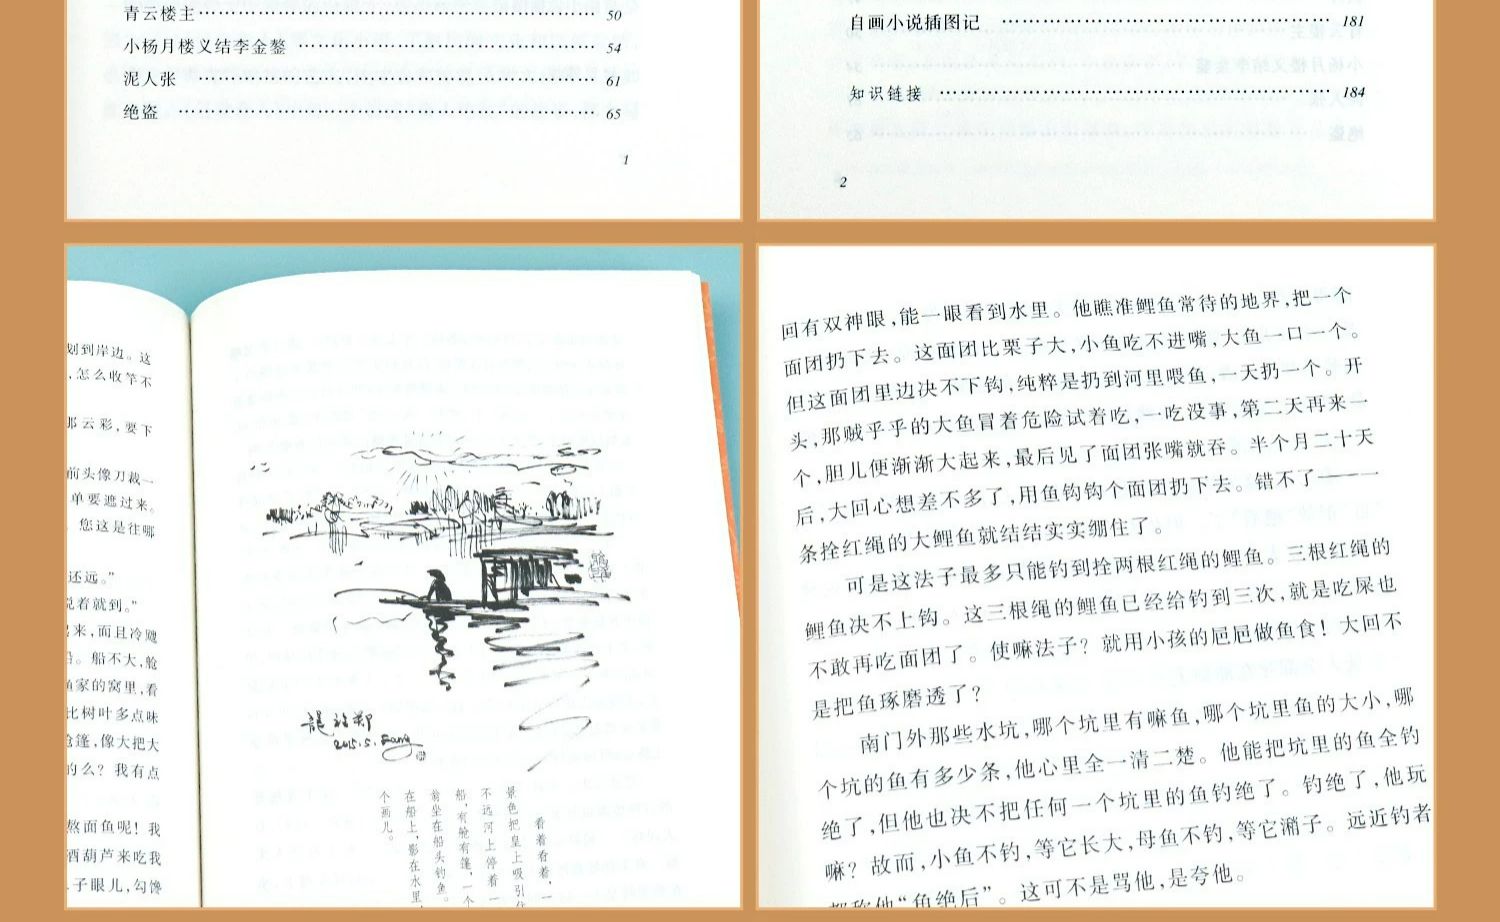 青云楼主 50
小杨月楼义结李金鏊 54
泥人张 61
绝盗 65
1
自画小说插图记 181
知识链接 184
2
划到岸边。这
，怎么收竿不
那云彩，要下
前头像刀裁一
单要遮过来。
您这是往哪
还远。”
说着就到。”
来，而且冷飕
船不大，舱
鱼家的窝里，看
比树叶多点味
舱篷，像大把大
的么？我有点
熬面鱼呢！我
酒葫芦来吃我
子眼儿，勾馋
2015.5.
看着看着，一
景色把皇上吸引住
不远河上停着一
船，有舱有篷，一个
翁坐在船头钓鱼。
在船上，影在水里，
个画儿。
回有双神眼，能一眼看到水里。他瞧准鲤鱼常待的地界，把一个
面团扔下去。这面团比栗子大，小鱼吃不进嘴，大鱼一口一个。
但这面团里边决不下钩，纯粹是扔到河里喂鱼，一天扔一个。开
头，那贼乎乎的大鱼冒着危险试着吃，一吃没事，第二天再来一
个，胆儿便渐渐大起来，最后见了面团张嘴就吞。半个月二十天
后，大回心想差不多了，用鱼钩钩个面团扔下去。错不了——一
条拴红绳的大鲤鱼就结结实实绷住了。
可是这法子最多只能钓到拴两根红绳的鲤鱼。三根红绳的
鲤鱼决不上钩。这三根绳的鲤鱼已经给钓到三次，就是吃屎也
不敢再吃面团了。使嘛法子？就用小孩的㞎㞎做鱼食！大回不
是把鱼琢磨透了？
南门外那些水坑，哪个坑里有嘛鱼，哪个坑里鱼的大小，哪
个坑的鱼有多少条，他心里全一清二楚。他能把坑里的鱼全钓
绝了，但他也决不把任何一个坑里的鱼钓绝了。钓绝了，他玩
嘛？故而，小鱼不钓，等它长大，母鱼不钓，等它潲子。远近钓者
都称他“鱼绝后”。这可不是骂他，是夸他。